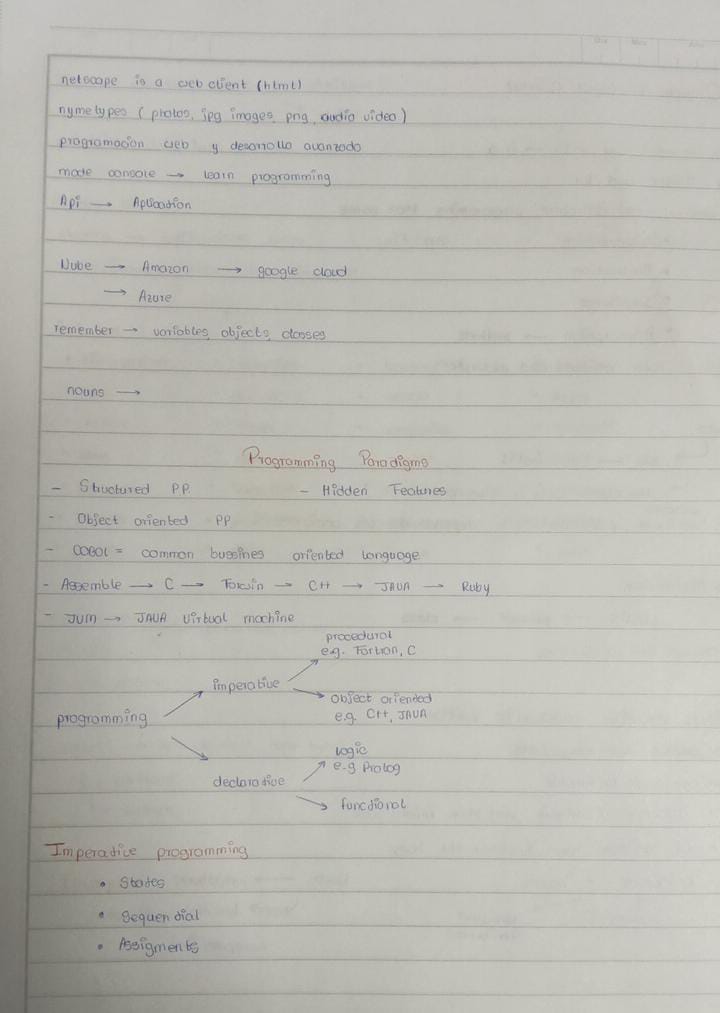 netscape is a web client (html)
nyme types ( photos, jpg images, png, audio video )
programacion web y desarrollo avanzado
mode console → learn programming
Api → Aplication
Nube → Amazon → google cloud
→ Azure
remember → variables, objects, classes
nouns →
Programming Paradigms
- Structured PP. - Hidden Features
- Object oriented PP
- COBOL = common bussines oriented language
- Assemble → C → → C++ → JAVA → Ruby
- JVM → JAVA Virtual machine
procedural
e.g. Fortran, C
imperative
Object oriented
e.g. C++, JAVA
programming
logic
e-g Prolog
declarative
functional
Imperative programming
• States
• Sequential
• Assigments